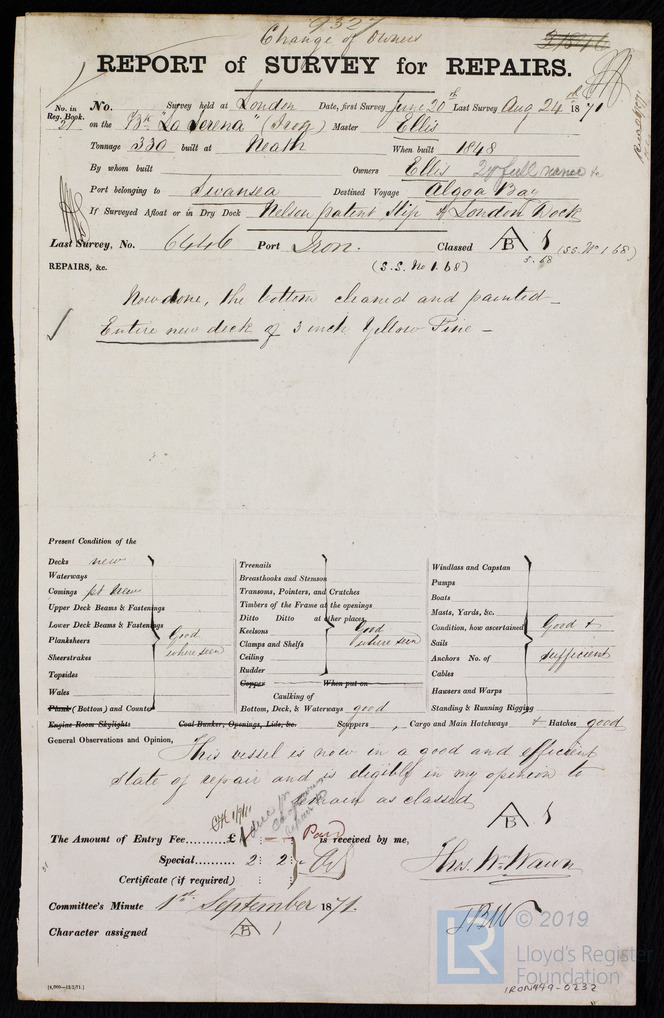 Change of Owners
REPORT of SURVEY for REPAIRS.
No. in Reg. Book. No. Survey held at London Date, first Survey June 20th Last Survey Aug 24th 1871
29 on the Bk "La Serena" (Iron) Master Ellis
Tonnage 330 built at Neath When built 1848
By whom built Owners Ellis
Port belonging to Swansea Destined Voyage Algoa Bay
If Surveyed Afloat or in Dry Dock Nelson patent Slip & London Dock
Last Survey, No. 6446 Port Iron. Classed A B 1 (SS. No 1 68)
5.68
REPAIRS, &c. (S.S. No 1. 68)
Now done, the bottom cleaned and painted
Entire new deck of 3 inch Yellow Pine
Present Condition of the
Decks new
Waterways
Comings pt new
Upper Deck Beams & Fastenings
Lower Deck Beams & Fastenings
Planksheers good
Sheerstrakes where seen
Topsides
Wales
Plank (Bottom) and Counter
Treenails
Breasthooks and Stemson
Transoms, Pointers, and Crutches
Timbers of the Frame at the openings
Ditto Ditto at other places
Keelsons good
Clamps and Shelfs where seen
Ceiling
Rudder
Copper When put on
Caulking of
Bottom, Deck, & Waterways good
Windlass and Capstan
Pumps
Boats
Masts, Yards, &c.
Condition, how ascertained Good &
Sails
Anchors No. of sufficient
Cables
Hawsers and Warps
Standing & Running Rigging
Engine Room Skylights Coal Bunker, Openings, Lids, &c. Scuppers , Cargo and Main Hatchways & Hatches good
General Observations and Opinion,
This vessel is now in a good and efficient
state of repair and is eligible in my opinion to
remain as classed
A B 1
The Amount of Entry Fee.......... £ Paid is received by me,
Special.......... 2: 2:
Certificate (if required)
Committee's Minute 1st September 1871.
Character assigned A B 1
© 2019
LR
Lloyd's Register
Foundation
IRON449-0232